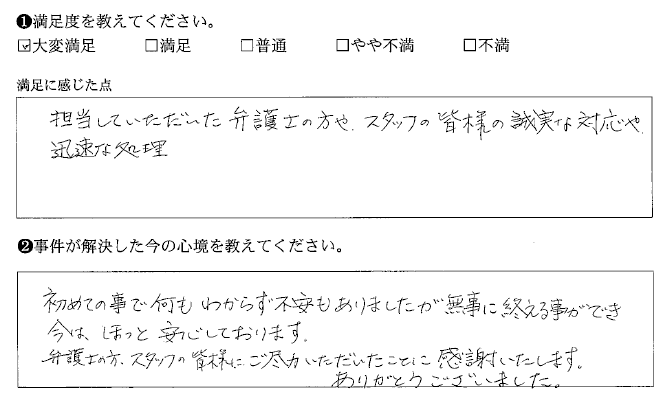 ❶満足度を教えてください。
☑大変満足 □満足 □普通 □やや不満 □不満
満足に感じた点
担当していただいた弁護士の方や、スタッフの皆様の誠実な対応や
迅速な処理
❷事件が解決した今の心境を教えてください。
初めての事で何もわからず不安もありましたが無事に終える事ができ
今は、ほっと安心しております。
弁護士の方、スタッフの皆様にご尽力いただいたことに感謝いたします。
ありがとうございました。